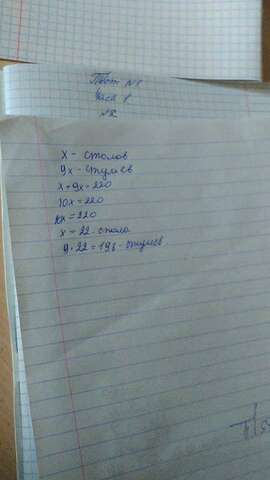 Тест №1
Часть 1
№2
x - столов
9x - стульев
x+9x=220
10x=220
10x=220
x=22 - стола
9·22=198 - стульев